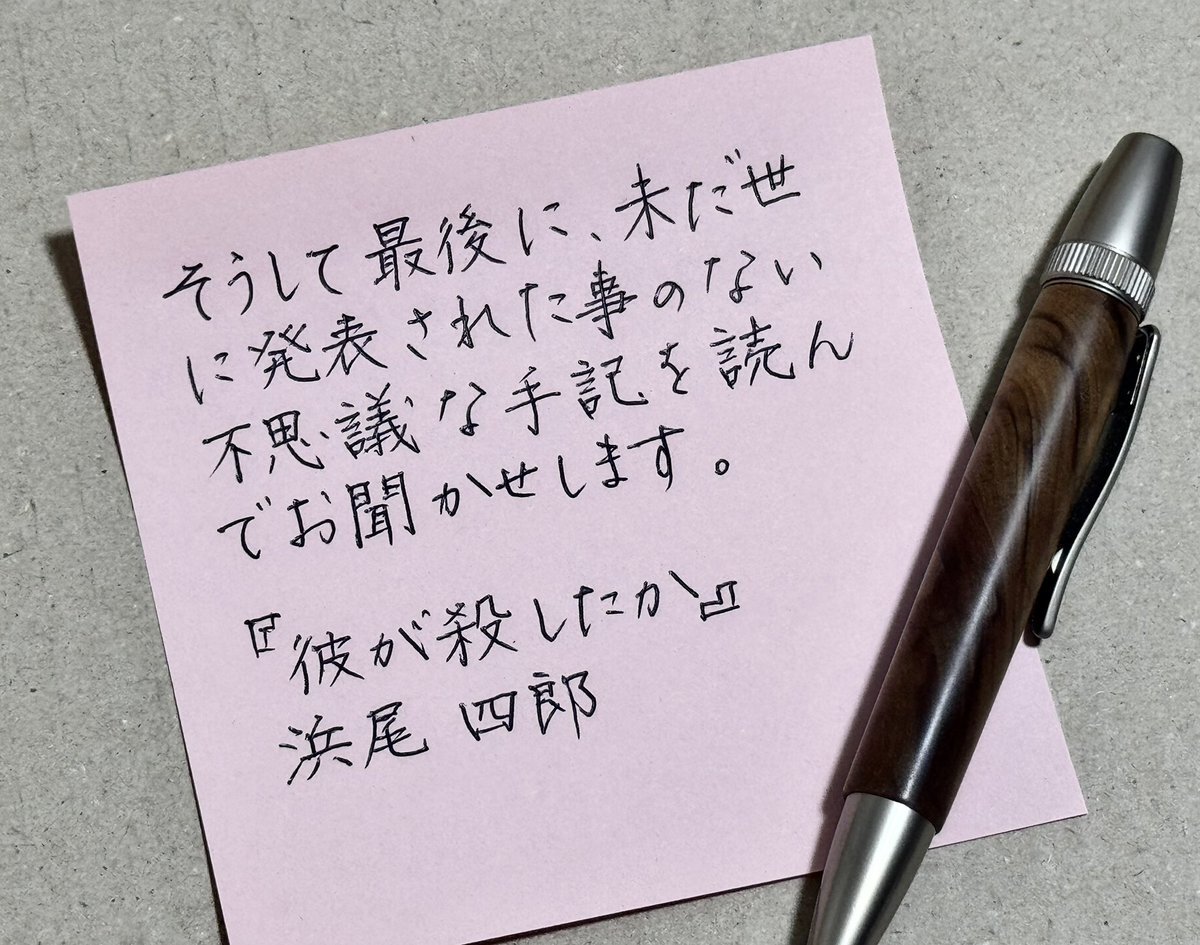 そうして最後に、未だ世
に発表された事のない
不思議な手記を読ん
でお聞かせします。
『彼が殺したか』
浜尾 四郎